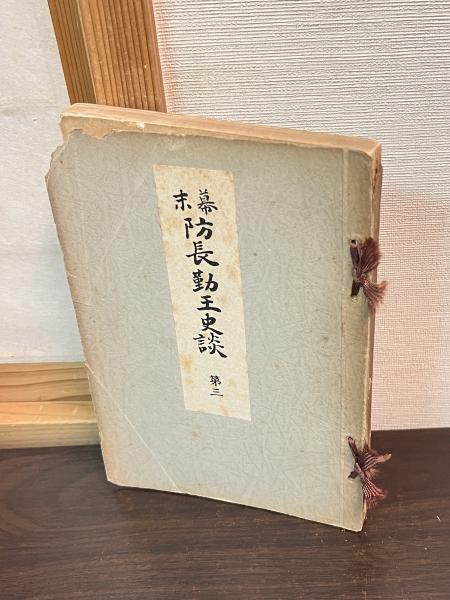 幕末
防長勤王史談
第三